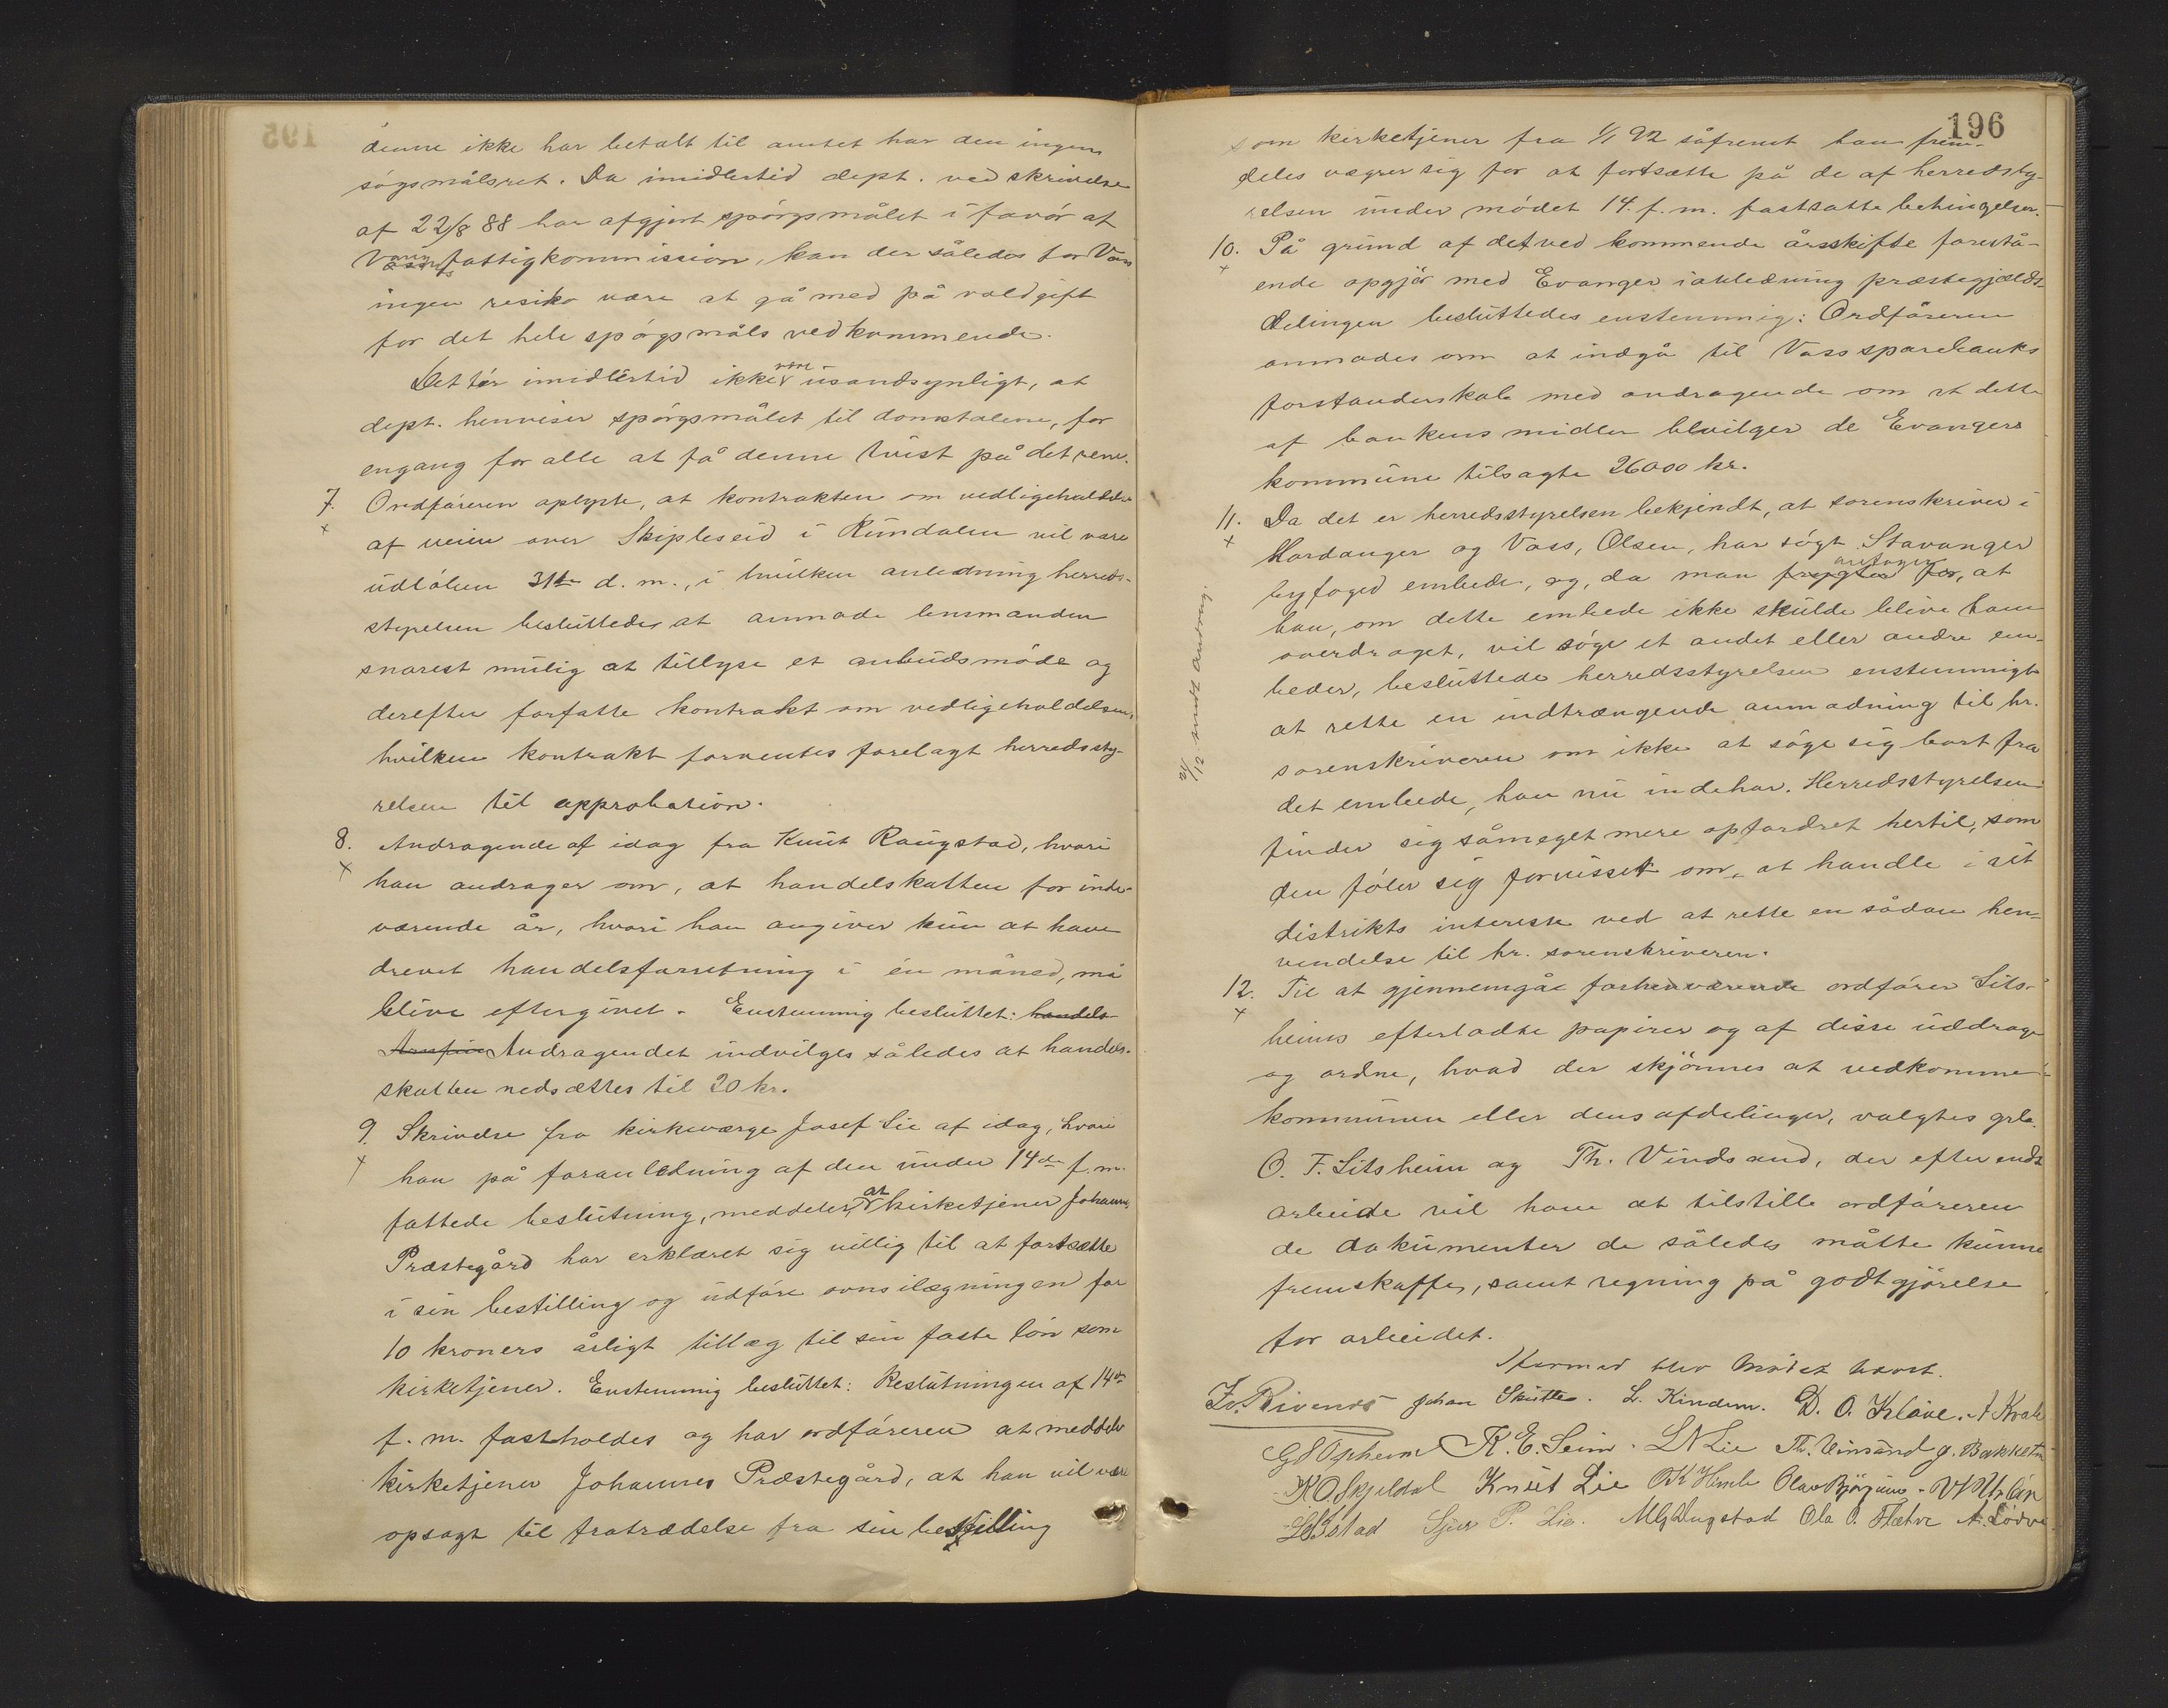 denne ikke har betalt til amtet har den ingen
søgsmålsret. Da imidlertid dept. ved skrivelse
af 22/8 88 har afgjort spørgsmålet i favør af
fattigkommission, kan der således for Voss
ingen resiko være at gå med på voldgift
for det hele spørgsmåls vedkommende.
Det tør imidlertid ikke være usandsynligt, at
dept. henviser spørgsmålet til domstolene, for
engang for alle at få denne tvist på det rene.
7. Ordføreren oplyste, at kontrakten om vedligeholdelse
af veien over Skipleseid i Rundalen vil være
udløben 31te d. m., i hvilken anledning herreds-
styrelsen besluttedes at anmode lensmanden
snarest mulig at tillyse et anbudsmøde og
derefter forfatte kontrakt om vedligeholdelsen,
hvilken kontrakt forventes forelagt herredssty-
relsen til approbation.
8. Andragende af idag fra Knut Raugstad, hvori
han andrager om, at handelskatten for inde-
værende år, hvori han angiver kun at have
drevet handelsforretning i én måned, må
blive eftergivet. Enstemmig besluttet: handels-
Andragendet indvilges således at handels-
skatten nedsættes til 20 kr.
9. Skrivelse fra kirkeværge Josef Lie af idag, hvori
han på foranledning af den under 14de f. m.
fattede beslutning, meddeler, at kirketjener Johannes
Præstegård har erklæret sig villig til at fortsætte
i sin bestilling og udføre ovnsilægningen for
10 kroners årligt tillæg til sin faste løn som
kirketjener. Enstemmig besluttet: Beslutningen af 14de
f. m. fastholdes og har ordføreren at meddele
kirketjener Johannes Præstegård, at han vil være
opsagt til fratrædelse fra sin bestilling
196
som kirketjener fra 1/1 92 såfremt han frem-
deles vægrer sig for at fortsætte på de af herredssty-
relsen under mødet 14. f. m. fastsatte betingelser.
10. På grund af det ved kommende årsskifte forestå-
ende opgjør med Evanger i anledning præstegjælds-
delingen besluttedes enstemmig: Ordføreren
anmodes om at indgå til Voss sparebanks
forstanderskab med andragende om at dette
af bankens midler bevilger de Evangers
kommune tilsagte 26000 kr.
11. Da det er herredsstyrelsen bekjendt, at sorenskriver i
Hardanger og Voss, Olsen, har søgt Stavanger
byfoged embede, og, da man frygter for, antager at
han, om dette embede ikke skulde blive ham
overdraget, vil søge et andet eller andre em-
beder, besluttede herredsstyrelsen enstemmigt
at rette en indtrængende anmodning til hr.
sorenskriveren om ikke at søge sig bort fra
det embede, han nu indehar. Herredsstyrelsen
finder sig såmeget mere opfordret hertil, som
den føler sig forvisset om, at handle i sit
distrikts interesse ved at rette en sådan hen-
vendelse til hr. sorenskriveren.
12. Til at gjennemgåe forhenværende ordfører Lits-
heims efterladte papirer og af disse uddrage
og ordne, hvad der skjønnes at vedkomme
kommunen eller dens afdelinger, valgtes grbr.
O. T. Litsheim og Th. Vindsand, der efter endt
arbeide vil have at tilstille ordføreren
de dokumenter de således måtte kunne
fremskaffe, samt regning på godtgjørelse
for arbeidet.
Hermed blev mødet hævet.
Johan Skutle. L. Kindem. D. O. Kløve. A Kvale
G S Opheim K. E. Seim. L N Lie Th. Vinsand
K O. Skjeldal Knut Lie O K Himle Olav Bjørgum.
Sjur P. Lie. M G Dugstad Ola O. Flatve A. Lødve